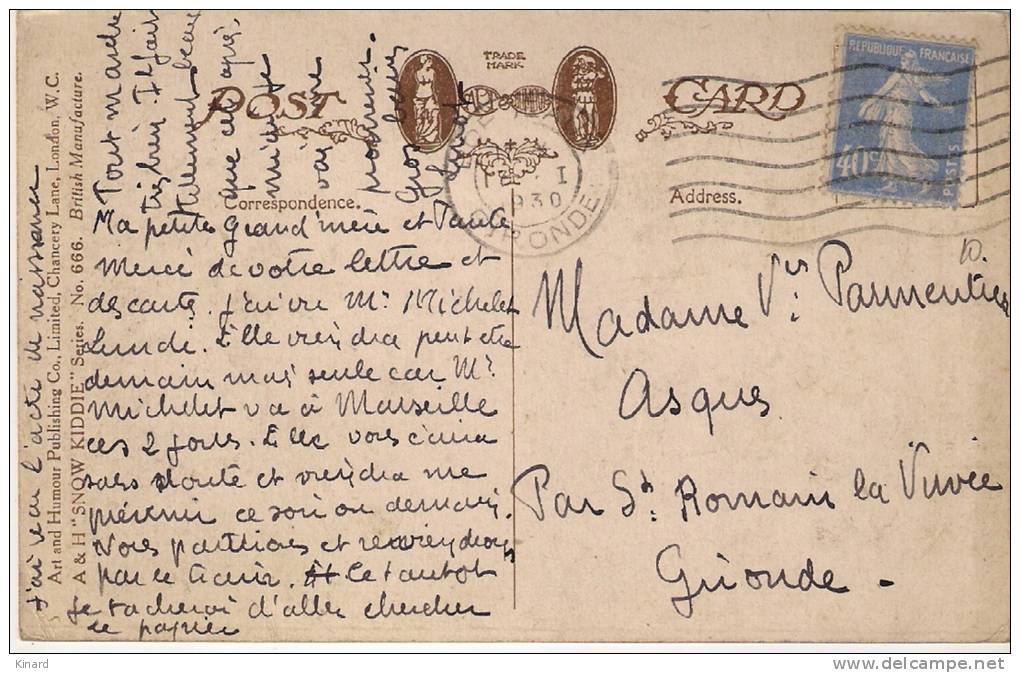 POST CARD
TRADE
MARK
Correspondence.
Address.
REPUBLIQUE FRANÇAISE
40c
POSTES
I
1930
GIRONDE
Ma petite Grand'mère et Tante
Merci de votre lettre et
des carte. J'ai vu Mr. Michelet
Lundi. Elle viendra peut etre
demain mais seule car Mr.
Michelet va à Marseille
ces 2 jours. Elle vous écrira
sans doute et viendra me
prévenir ce soir ou demain.
Nous partirons et reviendrons
par le train. Et ce tantot
je tacherai d'aller chercher
le papier
Tout marche
très bien. Il fait
tellement beau
que cet après
midi je
vais me
promener.
Gros baisers
J'ai reçu l'acte de naissance
Art and Humour Publishing Co., Limited, Chancery Lane, London, W.C.
A & H "SNOW KIDDIE" Series. No. 666. British Manufacture.
10.
Madame Vve Parmentier
Asques
Par St. Romain la Virvée
Gironde -
Kinard
www.delcampe.net